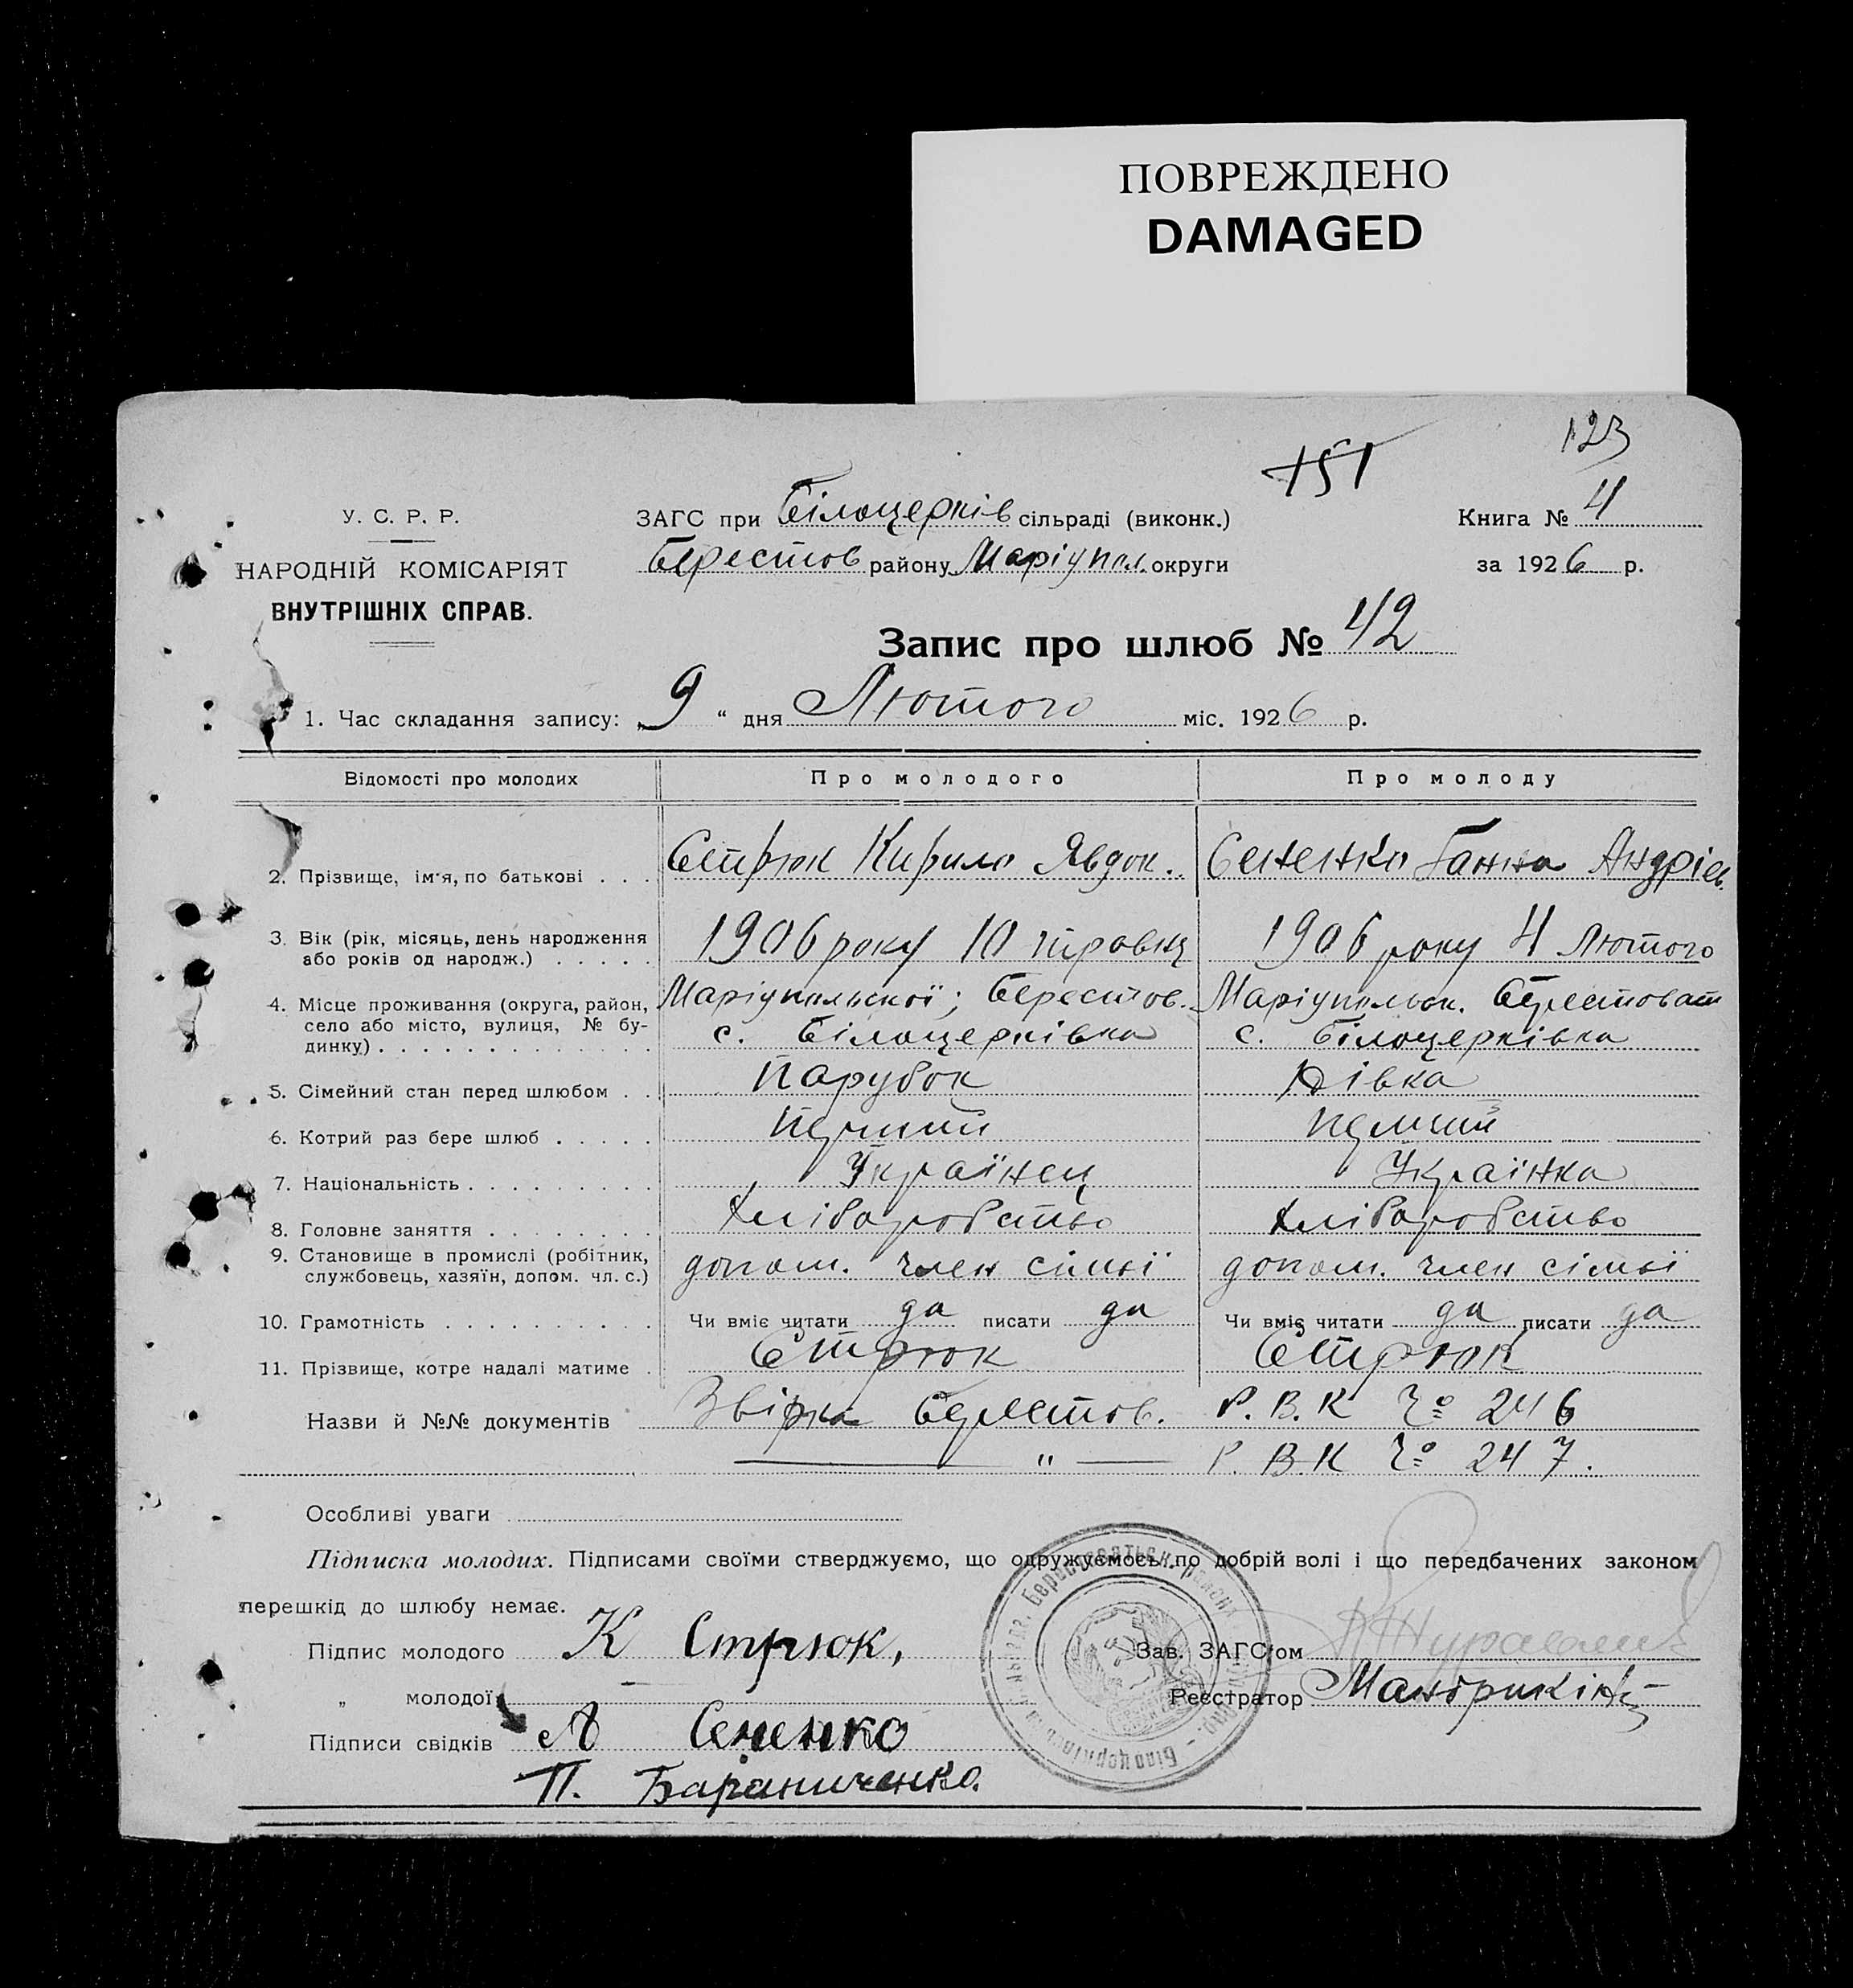 ПОВРЕЖДЕНО
DAMAGED
123
151
У. С. Р. Р.
НАРОДНІЙ КОМІСАРІЯТ
ВНУТРІШНІХ СПРАВ.
ЗАГС при Білоцерків сільраді (виконк.)
Берестов району Маріупол. округи
Книга № 4
за 1926 р.
Запис про шлюб № 42
1. Час складання запису: „9“ дня Лютого міс. 1926 р.
Відомості про молодих Про молодого Про молоду
2. Прізвище, ім'я, по батькові . . . Стрюк Кирило Явдок. Сененко Ганна Андріев.
3. Вік (рік, місяць, день народження 1906 року 10 травня 1906 року 4 Лютого
або років од народж.) . . . . .
4. Місце проживання (округа, район, Маріупольської; Берестов. Маріупольск. Берестоват
село або місто, вулиця, № бу- с. Білоцерківка с. Білоцерківка
динку) . . . . . . . . . . . . .
5. Сімейний стан перед шлюбом . . Парубок Дівка
6. Котрий раз бере шлюб . . . . . Перший Перший
7. Національність . . . . . . . . . Українец Українка
8. Головне заняття . . . . . . . . Хліборобство Хліборобство
9. Становище в промислі (робітник, допом. член сімьї допом. член сімьї
службовець, хазяїн, допом. чл. с.)
10. Грамотність . . . . . . . . . . Чи вміє читати да писати да Чи вміє читати да писати да
11. Прізвище, котре надалі матиме . Стрюк Стрюк
Назви й №№ документів Звірка Берестов. Р.В.К № 246
—— " —— Р.В.К № 247.
Особливі уваги
Підписка молодих. Підписами своїми стверджуємо, що одружуємось по добрій волі і що передбачених законом
перешкід до шлюбу немає.
Підпис молодого К Стрюк,
Зав. ЗАГС'ом
„ молодої
Реєстратор
Підписи свідків А Сененко
П. Бараниченко.